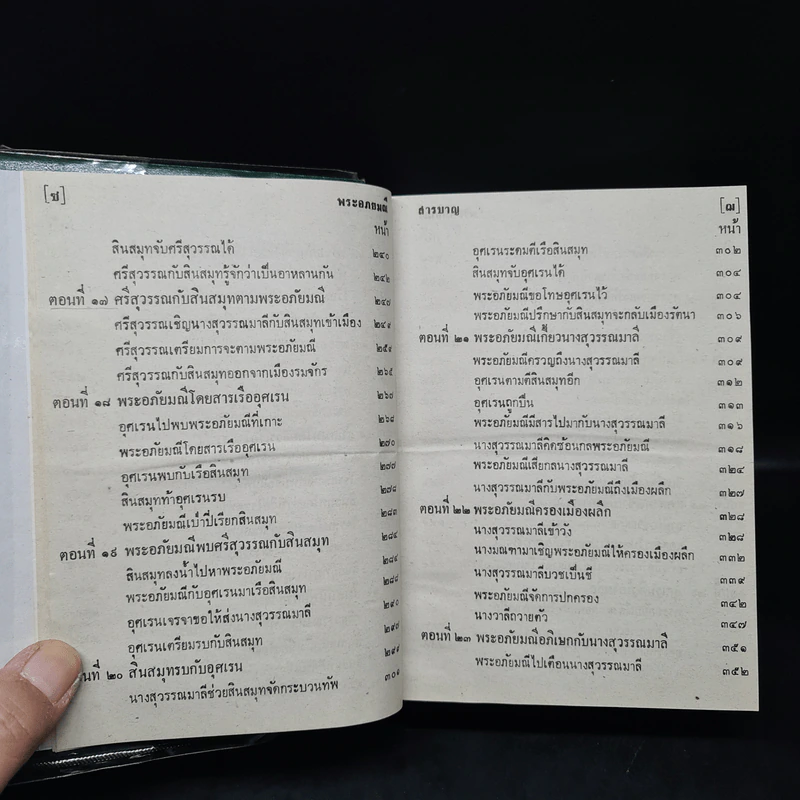 [ช] พระอภัยมณี
หน้า
สินสมุทจับศรีสุวรรณได้ ๒๔๐
ศรีสุวรรณกับสินสมุทรู้จักว่าเป็นอาหลานกัน ๒๔๒
ตอนที่ ๑๗ ศรีสุวรรณกับสินสมุทตามพระอภัยมณี ๒๔๗
ศรีสุวรรณเชิญนางสุวรรณมาลีกับสินสมุทเข้าเมือง ๒๔๙
ศรีสุวรรณเตรียมการจะตามพระอภัยมณี ๒๕๔
ศรีสุวรรณกับสินสมุทออกจากเมืองรมจักร ๒๖๕
ตอนที่ ๑๘ พระอภัยมณีโดยสารเรืออุศเรน ๒๖๗
อุศเรนไปพบพระอภัยมณีที่เกาะ ๒๖๘
พระอภัยมณีโดยสารเรืออุศเรน ๒๗๐
อุศเรนพบกับเรือสินสมุท ๒๗๗
สินสมุทท้าอุศเรนรบ ๒๗๘
พระอภัยมณีเป่าปี่เรียกสินสมุท ๒๘๓
ตอนที่ ๑๙ พระอภัยมณีพบศรีสุวรรณกับสินสมุท ๒๘๔
สินสมุทลงน้ำไปหาพระอภัยมณี ๒๘๔
พระอภัยมณีกับอุศเรนมาเรือสินสมุท ๒๘๘
อุศเรนเจรจาขอให้ส่งนางสุวรรณมาลี ๒๙๐
อุศเรนเตรียมรบกับสินสมุท ๒๙๗
นที่ ๒๐ สินสมุทรบกับอุศเรน ๒๙๙
นางสุวรรณมาลีช่วยสินสมุทจัดกระบวนทัพ ๓๐๑
สารบาญ [ฌ]
หน้า
อุศเรนระดมตีเรือสินสมุท ๓๐๒
สินสมุทจับอุศเรนได้ ๓๐๔
พระอภัยมณีขอโทษอุศเรนไว้ ๓๐๔
พระอภัยมณีปรึกษากับสินสมุทจะกลับเมืองรัตนา ๓๐๖
ตอนที่ ๒๑ พระอภัยมณีเกี้ยวนางสุวรรณมาลี ๓๐๙
พระอภัยมณีครวญถึงนางสุวรรณมาลี ๓๐๙
อุศเรนตามตีสินสมุทอีก ๓๑๒
อุศเรนถูกปืน ๓๑๓
พระอภัยมณีมีสารไปมากับนางสุวรรณมาลี ๓๑๖
นางสุวรรณมาลีคิดซ้อนกลพระอภัยมณี ๓๑๘
พระอภัยมณีเสียกลนางสุวรรณมาลี ๓๒๔
นางสุวรรณมาลีกับพระอภัยมณีถึงเมืองผลึก ๓๒๗
ตอนที่ ๒๒ พระอภัยมณีครองเมืองผลึก ๓๒๘
นางสุวรรณมาลีเข้าวัง ๓๒๘
นางมณฑามาเชิญพระอภัยมณีให้ครองเมืองผลึก ๓๓๒
นางสุวรรณมาลีบวชเป็นชี ๓๓๙
พระอภัยมณีจัดการปกครอง ๓๔๒
นางวาลีถวายตัว ๓๔๗
ตอนที่ ๒๓ พระอภัยมณีอภิเษกกับนางสุวรรณมาลี ๓๕๑
พระอภัยมณีไปเตือนนางสุวรรณมาลี ๓๕๒